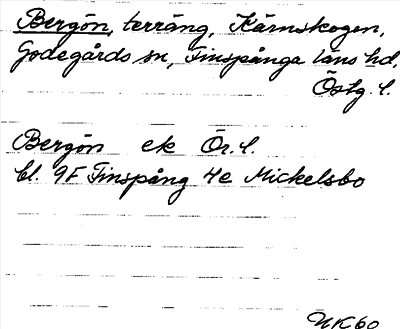 Bergön, terräng, Kärnskogen,
Godegårds sn, Finspånga läns hd,
Östg. l.
Bergön ek Ör. l.
bl. 9F Finspång 4e Mickelsbo
NK60